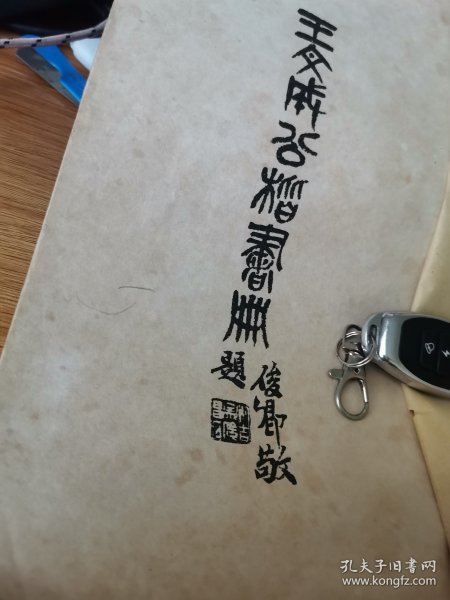 王文成公楷書冊
俊卿敬
題
孔夫子旧书网
www.kongfz.com